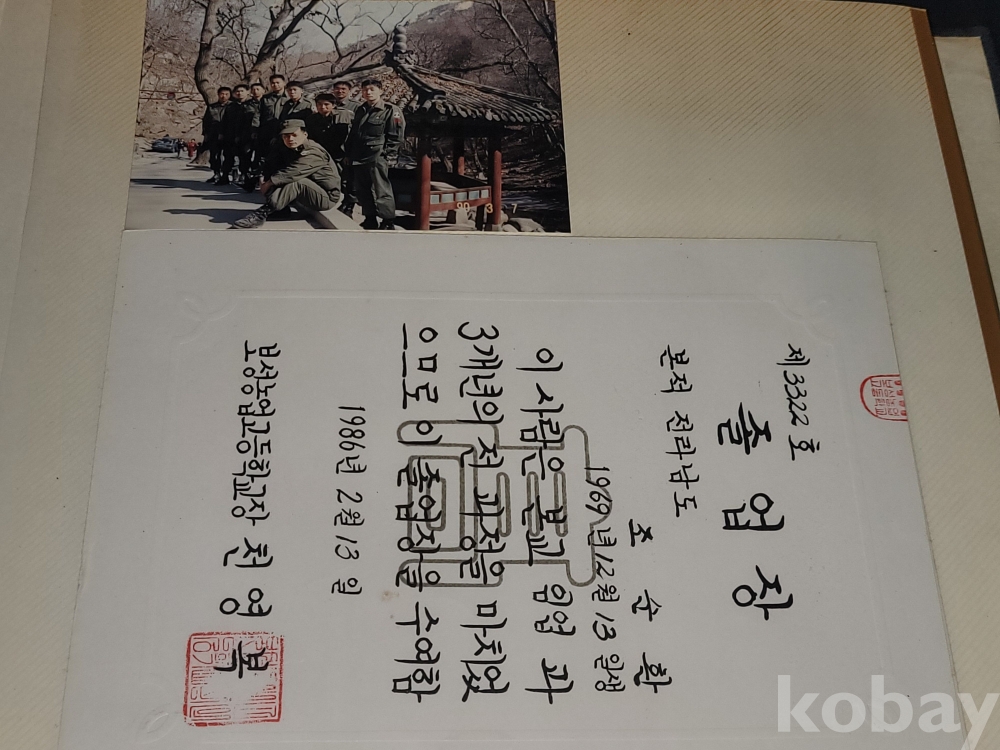 제3322호
졸업장
본적 전라남도
조순환
1969년12월13일생
이 사람은 본교 임업과
3개년의 전과정을 마치었
으므로 이 졸업장을 수여함
1986년 2월 13일
보성농업고등학교장 천영복
90 3 7
kobay